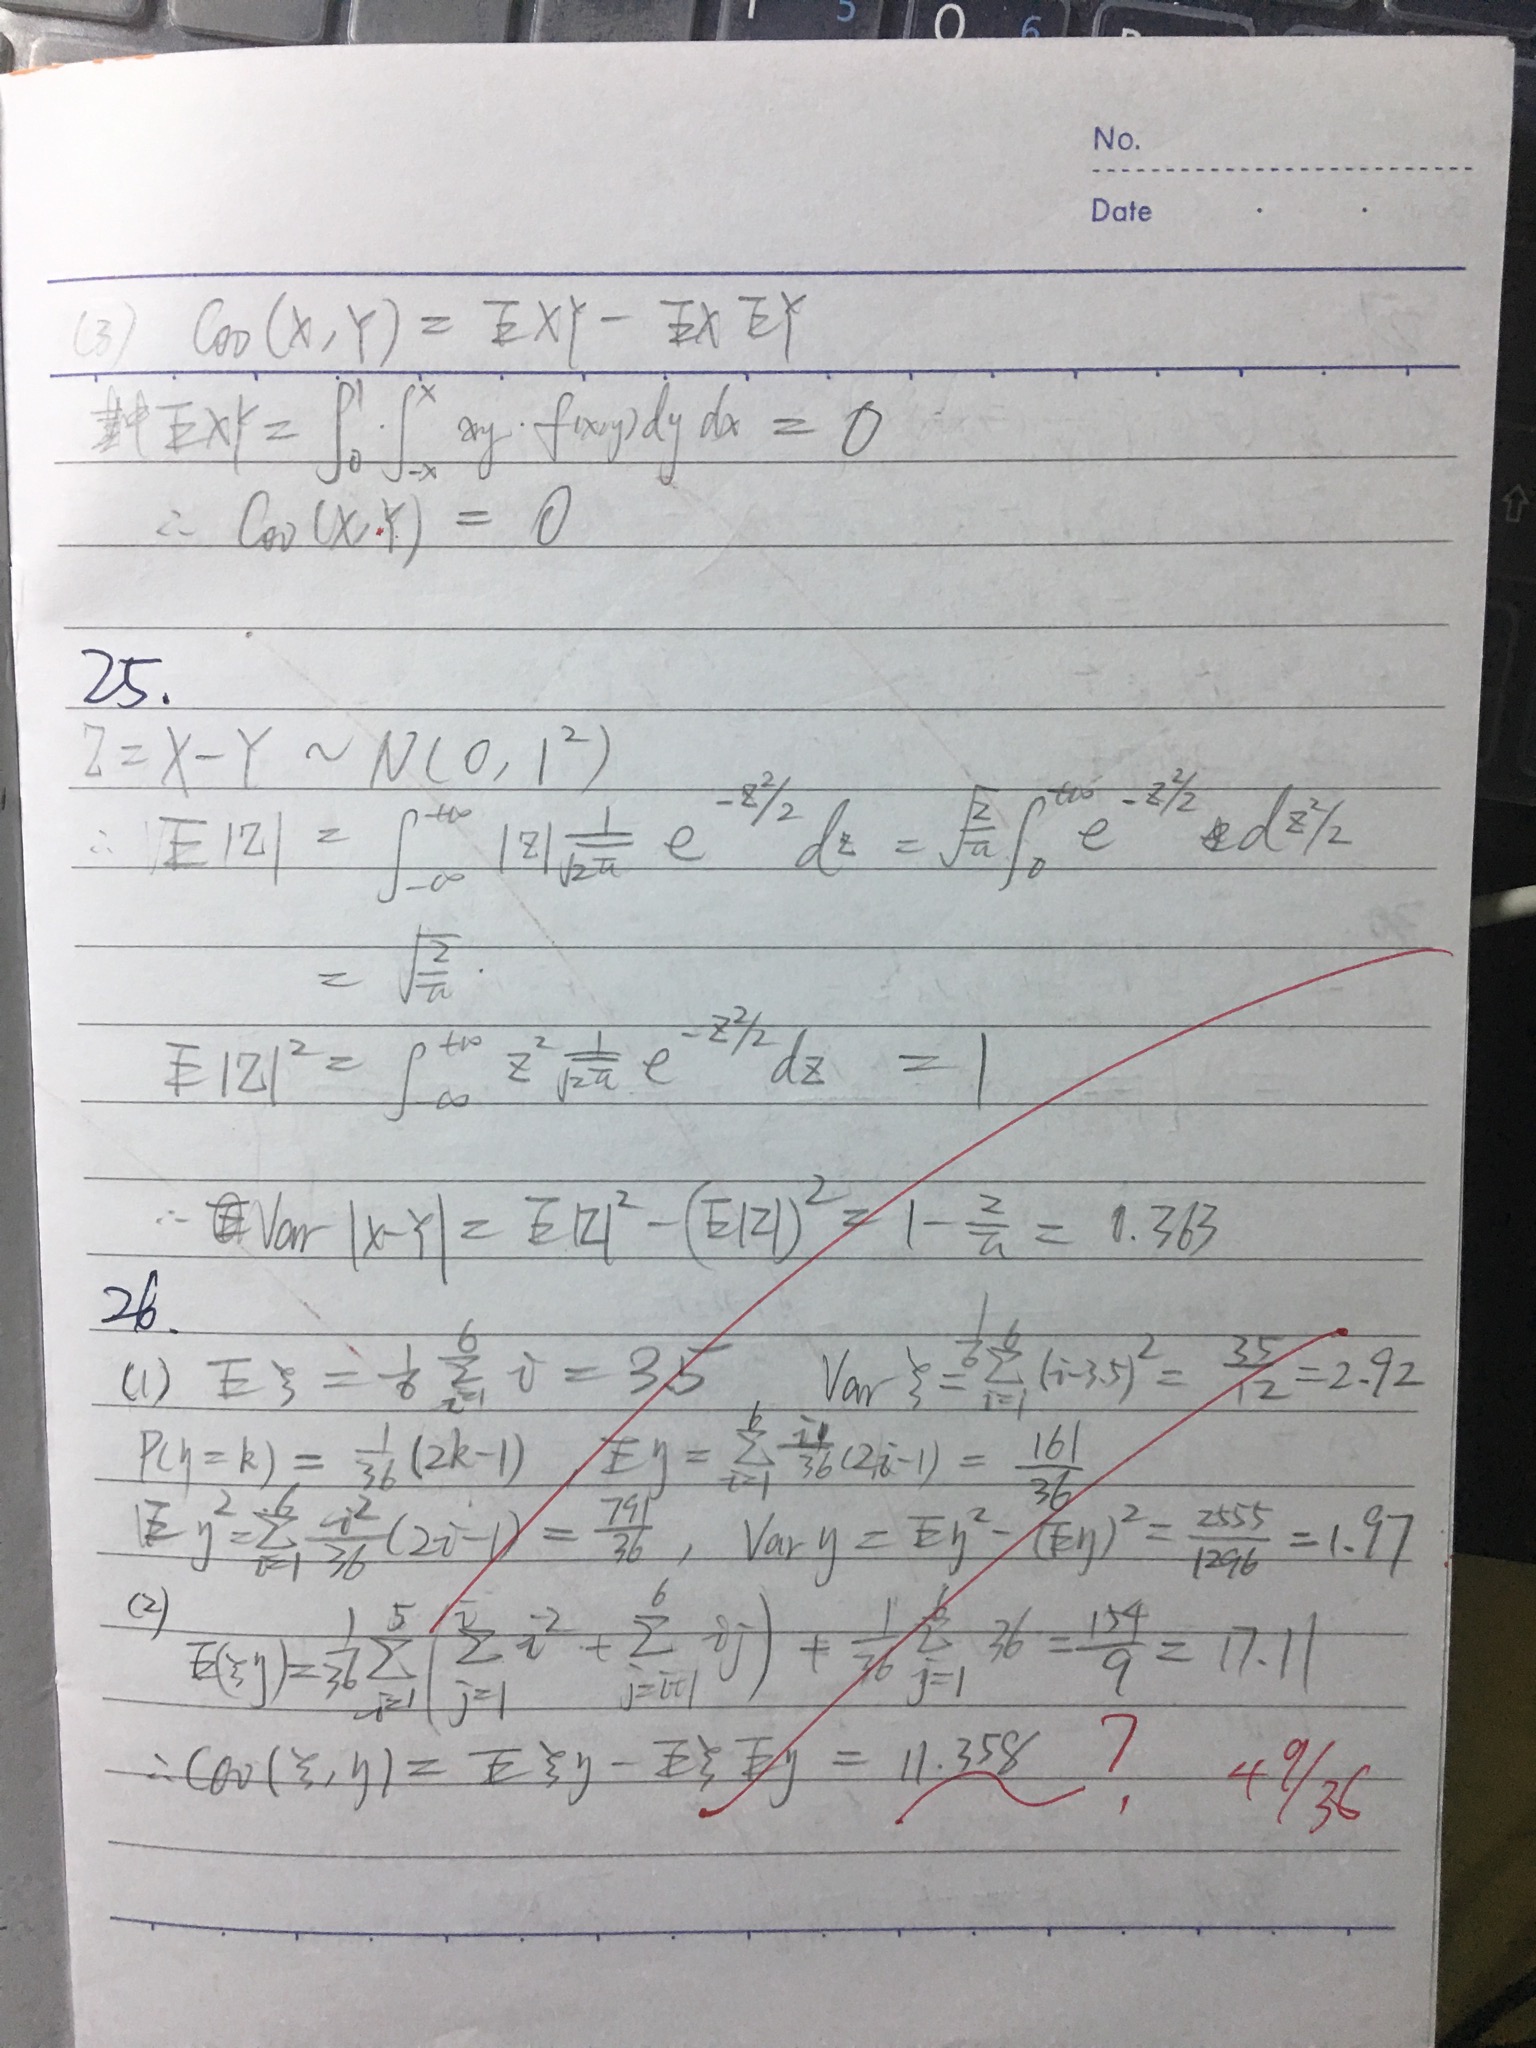 T 5 O 6
No.
Date
(3) Cov(X,Y) = EXY - EX EY
EXY = ∫₀¹ · ∫₋ₓˣ xy · f(x,y) dy dx = 0
∴ Cov(X,Y) = 0
25.
Z = X-Y ~ N(0, 1²)
∴ E|Z| = ∫_{-∞}^{+∞} |z| 1/√2π e^{-z²/2} dz = √(2/π) ∫₀^{+∞} e^{-z²/2} d z²/2
= √(2/π) .
E|Z|² = ∫_{-∞}^{+∞} z² 1/√2π e^{-z²/2} dz = 1
∴ Var |X-Y| = E|Z|² - (E|Z|)² = 1 - 2/π = 0.363
26.
(1) Eξ = 1/6 Σ_{i=1}^{6} i = 3.5 Var ξ = 1/6 Σ_{i=1}^{6} (i-3.5)² = 35/12 = 2.92
P(η=k) = 1/36 (2k-1) Eη = Σ_{i=1}^{6} i/36 (2i-1) = 161/36
Eη² = Σ_{i=1}^{6} i²/36 (2i-1) = 791/36 , Var η = Eη² - (Eη)² = 2555/1296 = 1.97
(2)
E(ξη) = 1/36 Σ_{i=1}^{5} (Σ_{j=1}^{i} i² + Σ_{j=i+1}^{6} ij) + 1/36 Σ_{j=1}^{6} 36 = 154/9 = 17.11
∴ Cov(ξ,η) = Eξη - Eξ Eη = 11.358 ? 49/36